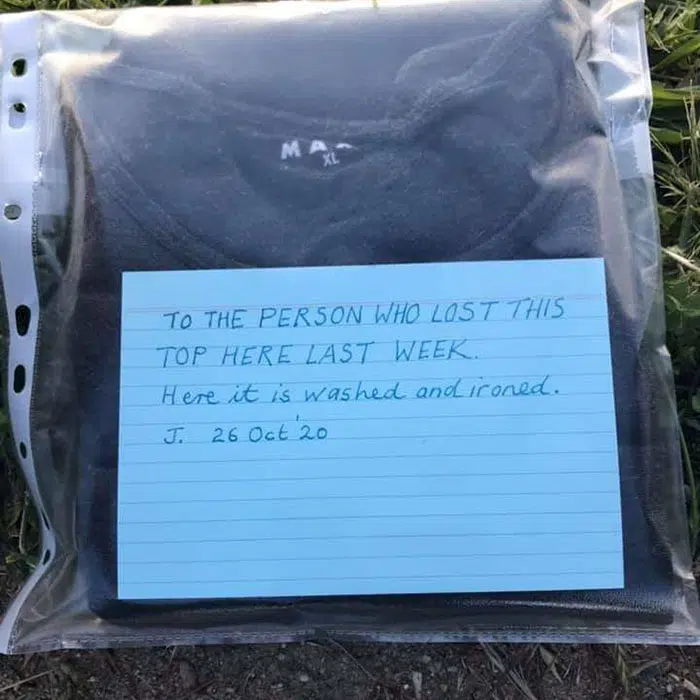 XL
TO THE PERSON WHO LOST THIS
TOP HERE LAST WEEK.
Here it is washed and ironed.
J. 26 Oct '20